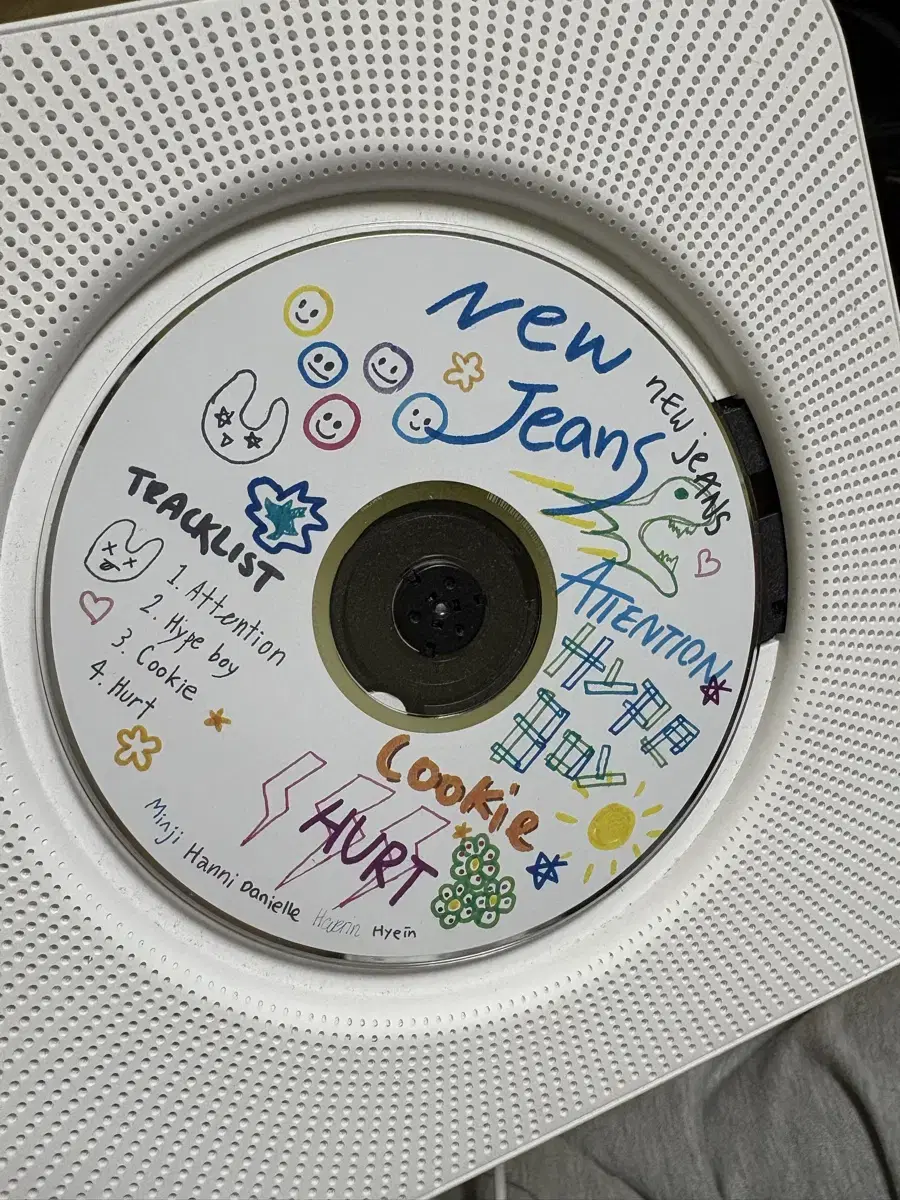 New
Jeans
NEW JEANS
TRACKLIST
1. Attention
2. Hype boy
3. Cookie
4. Hurt
ATTENTION
HYPE
BOY
COOKIE
HURT
Minji Hanni Danielle Haerin Hyein